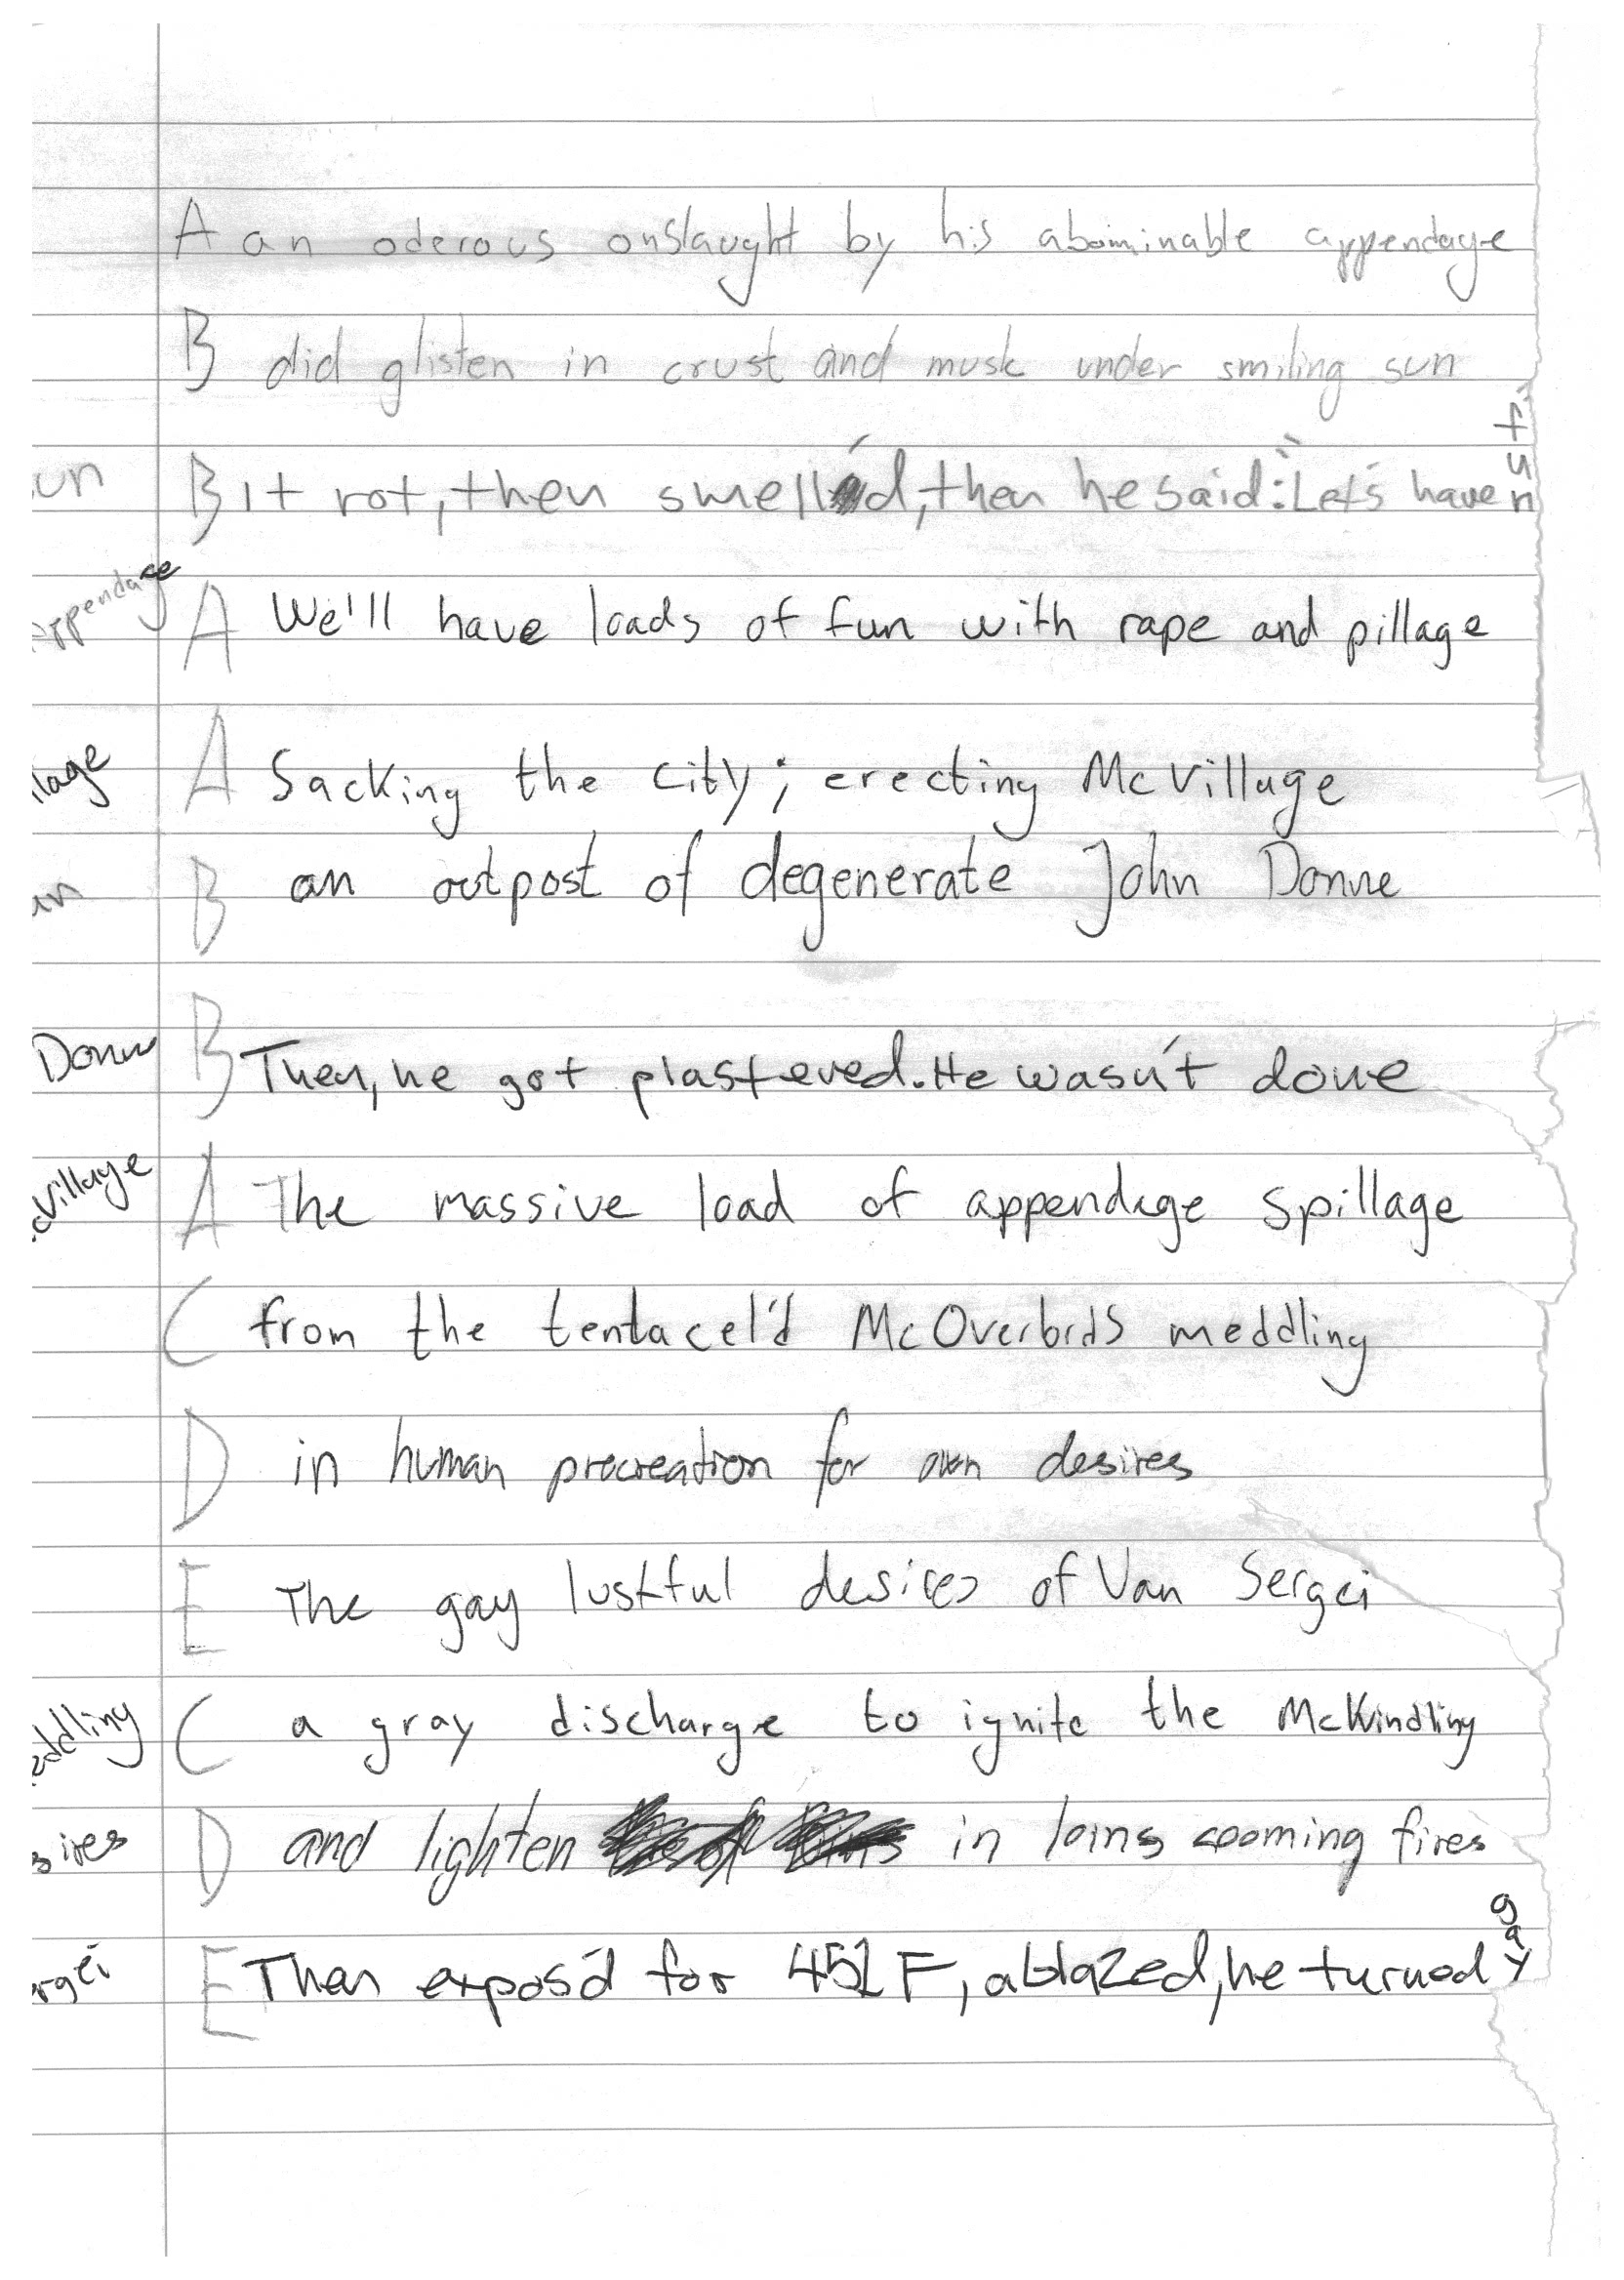 A an oderous onslaught by his abominable appendage
B did glisten in crust and musk under smiling sun
un B It rot, then smell'd, then he said: "Let's have fun"
appendage A We'll have loads of fun with rape and pillage
lage A Sacking the City; erecting McVillage
un B an outpost of degenerate John Donne
Donne B Then, he got plastered. He wasn't done
cVillage A The massive load of appendage spillage
C from the tentacel'd McOverbrds meddling
D in human procreation for own desires
E The gay lustful desires of Van Sergei
eddling C a gray discharge to ignite the McKindling
sires D and lighten in loins cooming fires
ergei E Then expos'd for 452 F, ablazed, he turned gay